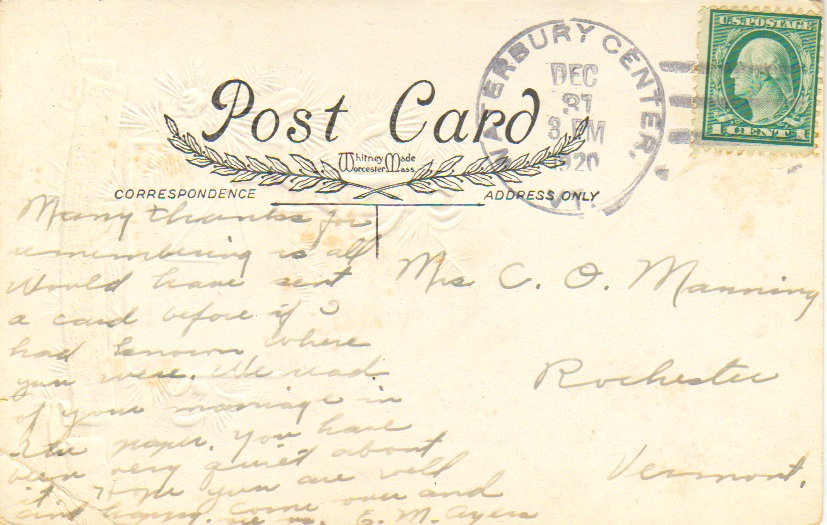 U.S. POSTAGE
1 CENT 1
WATERBURY CENTER,
DEC
31
3 PM
1920
VT.
Post Card
Whitney Made
Worcester Mass.
CORRESPONDENCE
ADDRESS ONLY
Many thanks for
remembering is all
Would have sent
a card before if I
had known where
you were. We read
of your marriage in
the paper. You have
been very quiet about
it. Hope you are well
and happy. Come over and
E. M. Ayers
Mrs C. O. Manning
Rochester
Vermont.